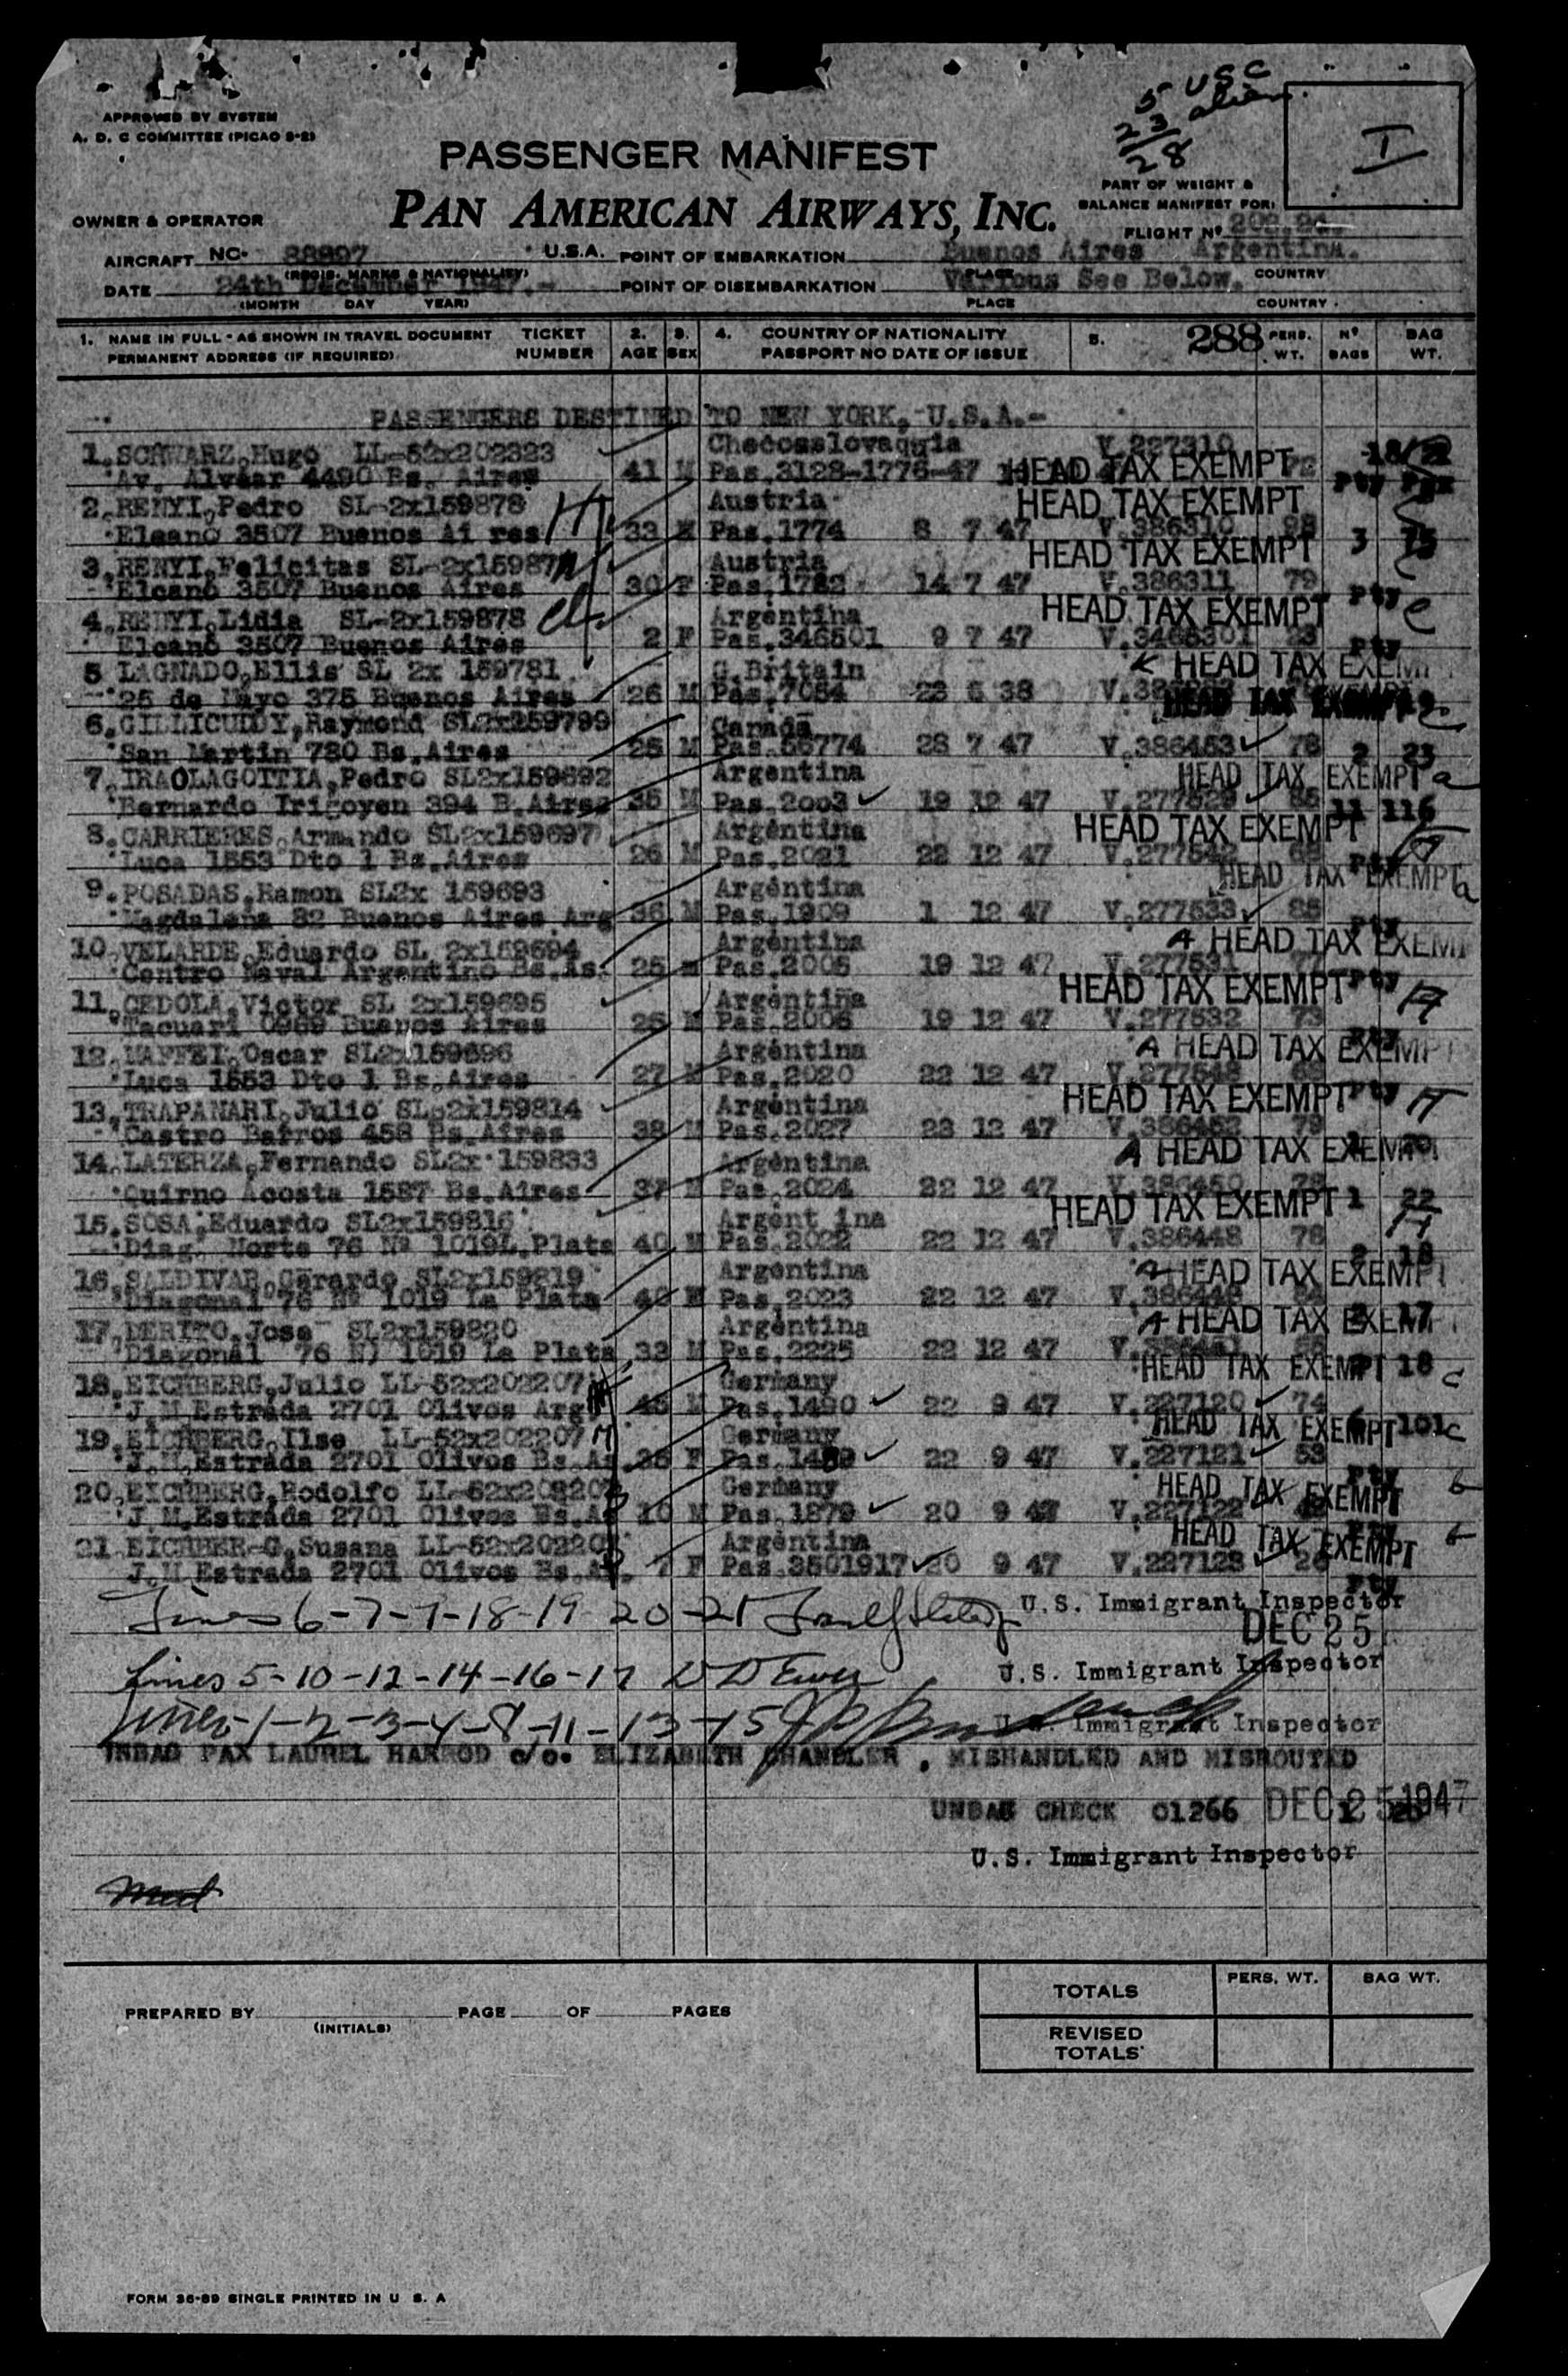 5 USC
23 alien
28
I
APPROVED BY SYSTEM
A. D. C COMMITTEE (PICAO 9-2)
PASSENGER MANIFEST
PAN AMERICAN AIRWAYS, INC.
PART OF WEIGHT &
BALANCE MANIFEST FOR:
OWNER & OPERATOR
FLIGHT Nº
AIRCRAFT NC- 88897 U.S.A. POINT OF EMBARKATION Buenos Aires Argentina.
(REGIS. MARKS & NATIONALITY) PLACE COUNTRY
DATE 24th December 1947.- POINT OF DISEMBARKATION Various See Below.
(MONTH DAY YEAR) PLACE COUNTRY
1. NAME IN FULL - AS SHOWN IN TRAVEL DOCUMENT TICKET 2. 3. 4. COUNTRY OF NATIONALITY 5. 288 PERS. Nº BAG
PERMANENT ADDRESS (IF REQUIRED) NUMBER AGE SEX PASSPORT NO DATE OF ISSUE WT. BAGS WT.
PASSENGERS DESTINED TO NEW YORK, U.S.A.-
1.SCHWARZ,Hugo LL-52x202323 Checoeslovaquia V.227310
Av. Alvear 4490 Bs. Aires 41 M Pas.3128-1776-47 HEAD TAX EXEMPT
2.RENYI,Pedro SL-2x159878 Austria HEAD TAX EXEMPT
Elcano 3507 Buenos Ai res 33 M Pas.1774 8 7 47 V.386310 3 75
3.RENYI,Felicitas SL-2x159877 Austria HEAD TAX EXEMPT
Elcano 3507 Buenos Aires 30 F Pas.1782 14 7 47 V.386311 79 Pty
4.RENYI,Lidia SL-2x159878 Argentina HEAD TAX EXEMPT
Elcano 3507 Buenos Aires 2 F Pas.346501 9 7 47 Pty
5 LAGNADO,Ellis SL 2x 159781 G.Britain HEAD TAX EXEMPT
25 de Mayo 375 Buenos Aires 26 M Pas.7054 23 6 38 HEAD TAX EXEMPT
6.GILLICUDDY,Raymond SL2x159799 Canada
San Martin 780 Bs.Aires 28 M Pas.56774 28 7 47 V.386453 76 2 23
7.IRAOLAGOITIA,Pedro SL2x159692 Argentina HEAD TAX EXEMPT a
Bernardo Irigoyen 394 B.Aires 35 M Pas.2003 19 12 47 V.277529 85 11 116
8.CARRIERES,Armando SL2x159697 Argentina HEAD TAX EXEMPT
Luca 1553 Dto 1 Bs.Aires 26 M Pas.2021 22 12 47 V.277542 Pty
9.POSADAS,Ramon SL2x 159693 Argentina HEAD TAX EXEMPT a
Magdalena 82 Buenos Aires,Arg 36 M Pas.1909 1 12 47 V.277533 85 Pty
10.VELARDE,Eduardo SL 2x159694 Argentina A HEAD TAX EXEMPT
Centro Naval Argentino Bs.As. 25 m Pas.2005 19 12 47 V.277531 Pty
11.CEDOLA,Victor SL 2x159695 Argentina HEAD TAX EXEMPT A
Tacuari 0969 Buenos Aires 25 M Pas.2006 19 12 47 V.277532 73 Pty
12.MAFFEI,Oscar SL2x159696 Argentina A HEAD TAX EXEMPT
Luca 1553 Dto 1 Bs.Aires 27 M Pas.2020 22 12 47 V.277548 Pty
13.TRAPANARI,Julio SL-2x159814 Argentina HEAD TAX EXEMPT A
Castro Barros 458 Bs.Aires 38 M Pas.2027 23 12 47 V.386452 79
14.LATERZA,Fernando SL2x 159833 Argentina A HEAD TAX EXEMPT
Quirno Acosta 1587 Bs.Aires 37 M Pas.2024 22 12 47 V.386450 1 22
15.SOSA,Eduardo SL2x159816 Argent ina HEAD TAX EXEMPT A
Diag. Norte 76 Nº 1019L.Plata 40 M Pas.2022 22 12 47 V.386448 78 2 18
16.SALDIVAR,Gerardo SL2x159819 Argentina A HEAD TAX EXEMPT
Diagonal 76 Nº 1019 La Plata 40 M Pas.2023 22 12 47 17
17.DERITO,Jose SL2x159820 Argentina A HEAD TAX EXEMPT
Diagonal 76 N) 1019 La Plata 33 M Pas.2225 22 12 47 18
18.EICHBERG,Julio LL-52x202207 Germany HEAD TAX EXEMPT c
J.M.Estrada 2701 Olivos Arg. 45 M Pas.1490 22 9 47 V.227120 74 101
19.EICHBERG,Ilse LL-52x202207 Germany HEAD TAX EXEMPT c
J.M.Estrada 2701 Olivos Bs.As. 36 F Pas.1489 22 9 47 V.227121 53 Pty
20.EICHBERG,Rodolfo LL-52x202207 Germany HEAD TAX EXEMPT
J.M.Estrada 2701 Olivos Bs.As 10 M Pas.1879 20 9 47 V.227122 Pty
21 EICHBER-G,Susana LL-52x202207 Argentina HEAD TAX EXEMPT
J.M.Estrada 2701 Olivos Bs.As. 7 F Pas.3501917 20 9 47 V.227123 26 Pty
Lines 6-7-9-18-19-20-21 U.S. Immigrant Inspector
DEC 25
Lines 5-10-12-14-16-17 U.S. Immigrant Inspector
Lines-1-2-3-4-8-11-13-15 U.S. Immigrant Inspector
UNBAG PAX LAUREL HARROD c/o. ELIZABETH CHANDLER , MISHANDLED AND MISROUTED
UNBAG CHECK 01266 DEC 25 1947
U.S. Immigrant Inspector
Med
PERS. WT. BAG WT.
TOTALS
PREPARED BY PAGE OF PAGES
(INITIALS)
REVISED
TOTALS
FORM 36-89 SINGLE PRINTED IN U S. A